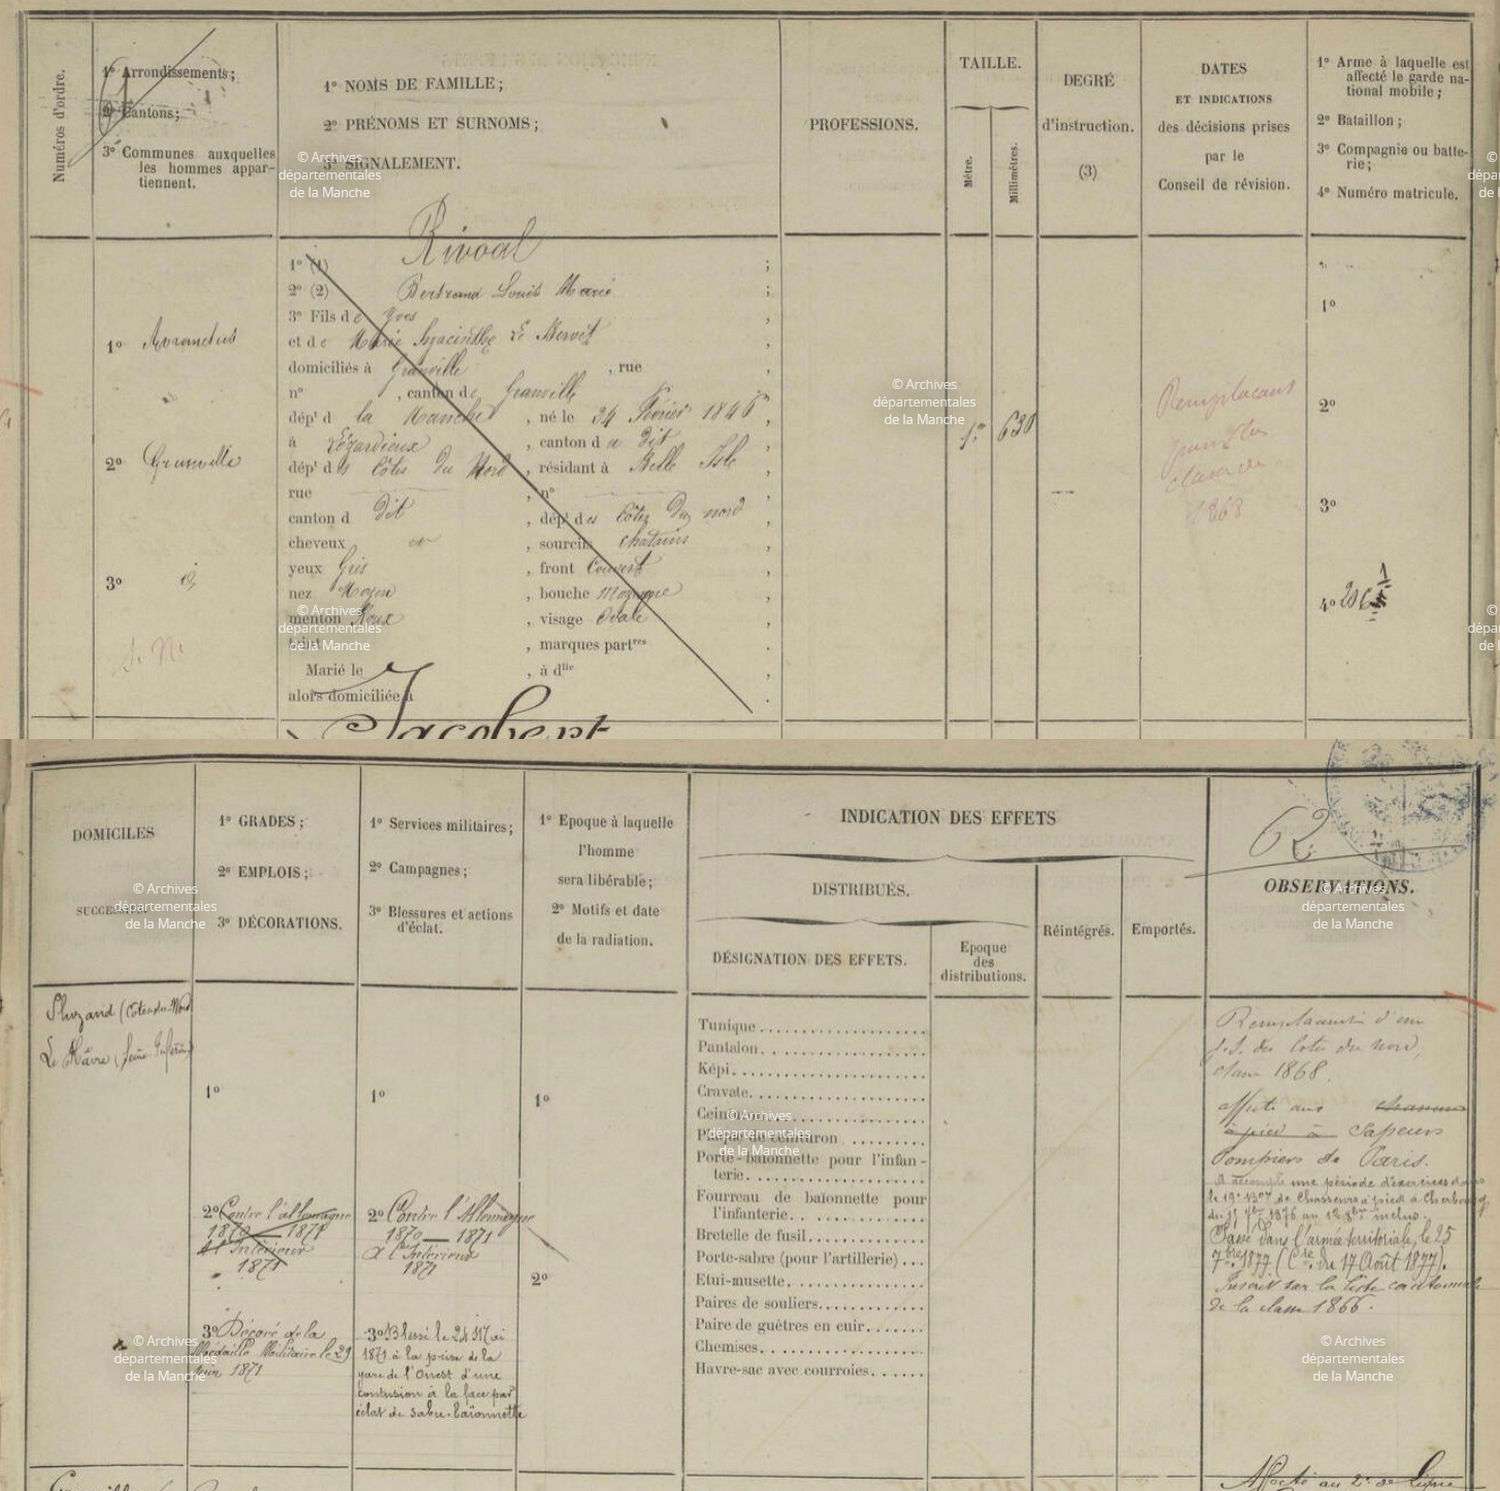 Numéros d'ordre.
1º Arrondissements;
2º Cantons;
3º Communes auxquelles
les hommes appar-
tiennent.
1º NOMS DE FAMILLE;
2º PRÉNOMS ET SURNOMS;
3º SIGNALEMENT.
PROFESSIONS.
TAILLE.
Mètre.
Millimètres.
DEGRÉ
d'instruction.
(3)
DATES
ET INDICATIONS
des décisions prises
par le
Conseil de révision.
1º Arme à laquelle est
affecté le garde na-
tional mobile;
2º Bataillon;
3º Compagnie ou batte-
rie;
4º Numéro matricule.
© Archives
départementales
de la Manche
1º Avranches
2º Granville
3º
1º (1) Rivoal ;
2º (2) Bertrand Louis Marie ;
3º Fils de Yves ,
et de Marie Hyacinthe Le Hervet ,
domiciliés à Granville , rue ,
nº , canton de Granville ,
dépt d la Manche , né le 24 Février 1846 ,
à Lézardieux , canton d u dit ,
dépt d es Côtes du Nord , résidant à Belle Isle ,
rue , nº ,
canton d dit , dépt des Côtes du nord ,
cheveux , sourcils chatains ,
yeux Gris , front Couvert ,
nez Moyen , bouche moyenne ,
menton , visage Ovale ,
teint , marques partres .
Marié le , à dlle
alors domiciliée à .
Jacobert
1. 630
Remplaçant
classe de
1868
1º
2º
3º
4º
© Archives
départementales
de la Manche
DOMICILES
SUCCESSIFS
1º GRADES;
2º EMPLOIS;
3º DÉCORATIONS.
1º Services militaires;
2º Campagnes;
3º Blessures et actions
d'éclat.
1º Epoque à laquelle
l'homme
sera libérable;
2º Motifs et date
de la radiation.
INDICATION DES EFFETS
DISTRIBUÉS.
DÉSIGNATION DES EFFETS.
Epoque
des
distributions.
Réintégrés.
Emportés.
62
OBSERVATIONS.
(Côtes du Nord
Le Hâvre (Seine Inférre)
1º
2º Contre l'allemagne
1870 — 1871
à l'Intérieur
1871
3º Décoré de la
Médaille Militaire le 29
1871
1º
2º Contre l'Allemagne
1870 — 1871
à l'Intérieur
1871
3º Blessé le 24 Mai
1871 à la prise de la
gare de l'Ouest d'une
contusion à la face par
éclat de sabre-baïonnette
1º
2º
Tunique
Pantalon
Képi
Cravate
Ceinturon
Plaque de ceinturon
Porte-baïonnette pour l'infan-
terie
Fourreau de baïonnette pour
l'infanterie
Bretelle de fusil
Porte-sabre (pour l'artillerie)
Etui-musette
Paires de souliers
Paire de guêtres en cuir
Chemises
Havre-sac avec courroies
Remplaçant d'un
j.s. des Cotes du Nord,
classe 1868.
affecté aux chasseurs
à pied à Sapeurs
Pompiers de Paris.
A accompli une période d'exercices dans
le 19e Bon de Chasseurs à pied à Cherbourg
du 15 7bre 1876 au 12 8bre inclus.
Passé dans l'armée territoriale, le 25
7bre 1877 (Cre du 17 Août 1877).
Inscrit sur la liste cantonale
de la classe 1866.
© Archives
départementales
de la Manche
Affecté au 2e de Ligne